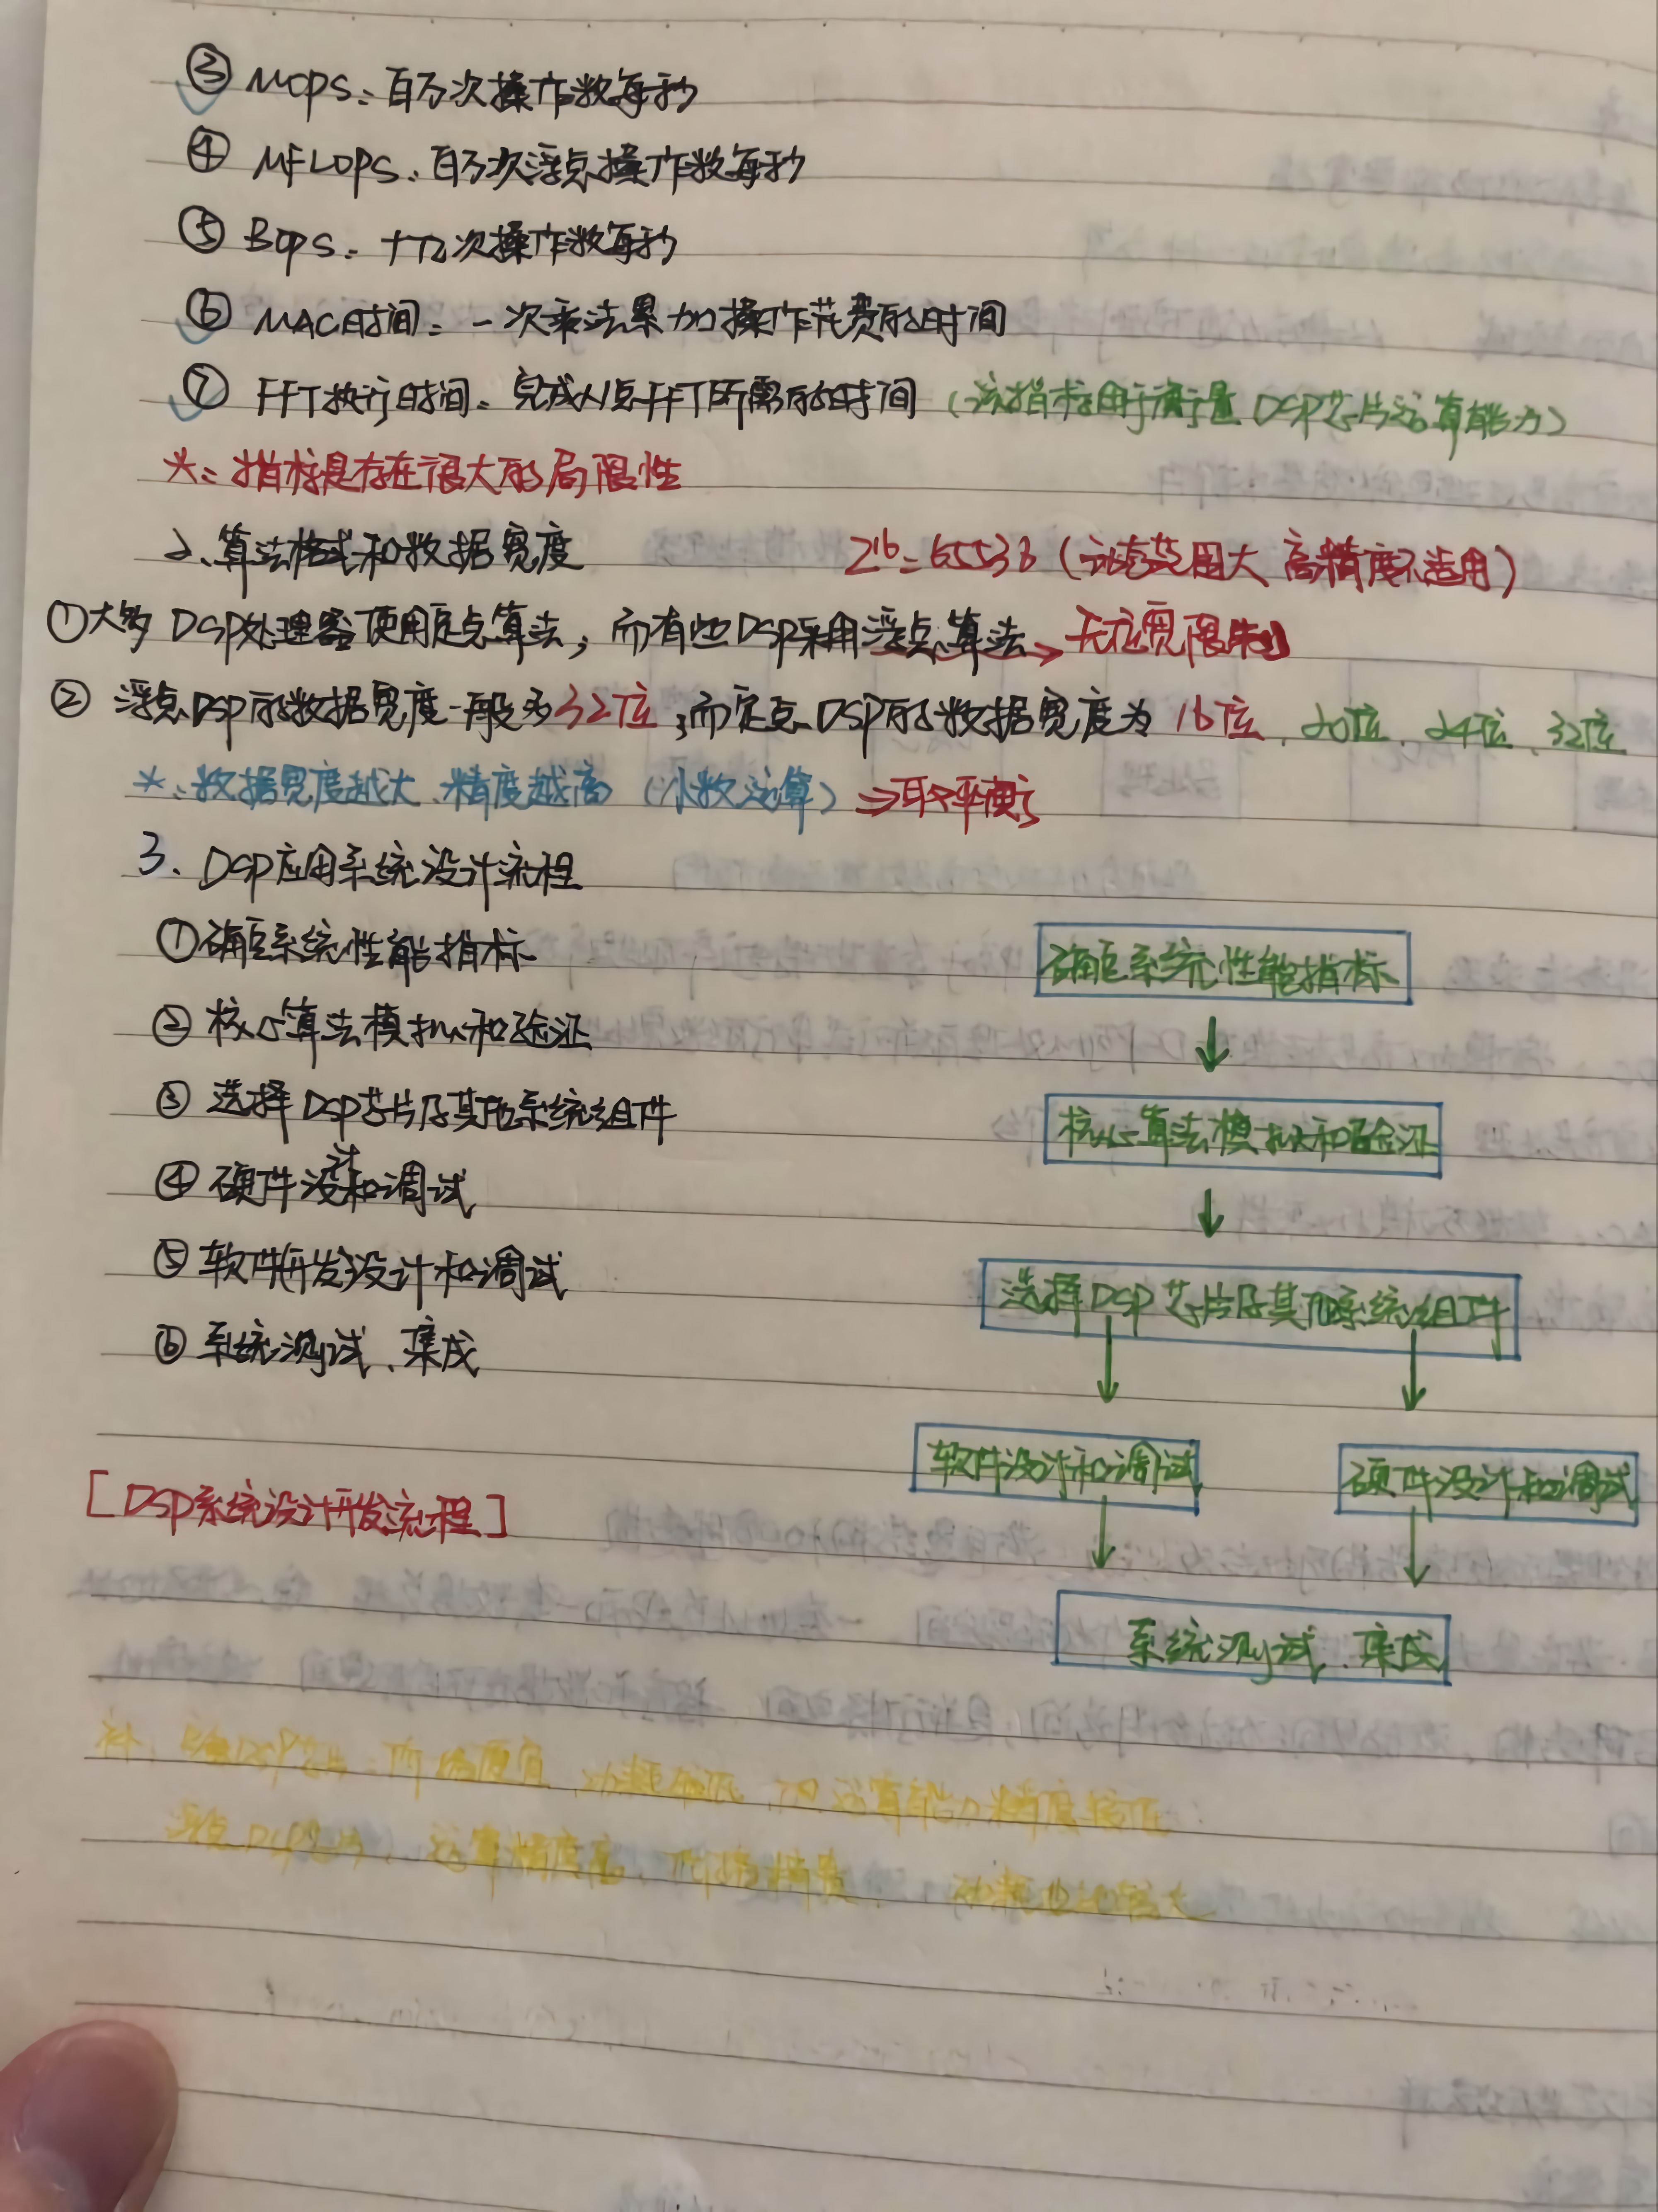 ③ MOPS：百万次操作数每秒
④ MFLOPS：百万次浮点操作数每秒
⑤ BOPS：十亿次操作数每秒
⑥ MAC时间：一次乘法累加操作花费的时间
⑦ FFT执行时间：完成N点FFT所需的时间（该指标用于衡量DSP芯片运算能力）
*：指标是存在很大的局限性
2、算法格式和数据宽度
2^16=65536（动态范围大 高精度不适用）
①大多DSP处理器使用定点算法，而有些DSP采用浮点算法→无位宽限制
② 浮点DSP的数据宽度一般为32位，而定点DSP的数据宽度为16位、20位、24位、32位
*：数据宽度越大、精度越高（小数运算）⇒取平衡
3、DSP应用系统设计流程
①确定系统性能指标
② 核心算法模拟和验证
③ 选择DSP芯片及其他系统组件
④ 硬件设计和调试
⑤ 软件开发设计和调试
⑥ 系统测试、集成
确定系统性能指标
↓
核心算法模拟和验证
↓
选择DSP芯片及其他系统组件
↓ ↓
软件设计和调试 硬件设计和调试
↓ ↓
系统测试、集成
[DSP系统设计开发流程]
补：定点DSP芯片：价格便宜、功耗较低、但运算 精度较低；
浮点DSP芯片：运算精度高、 功耗也 较大